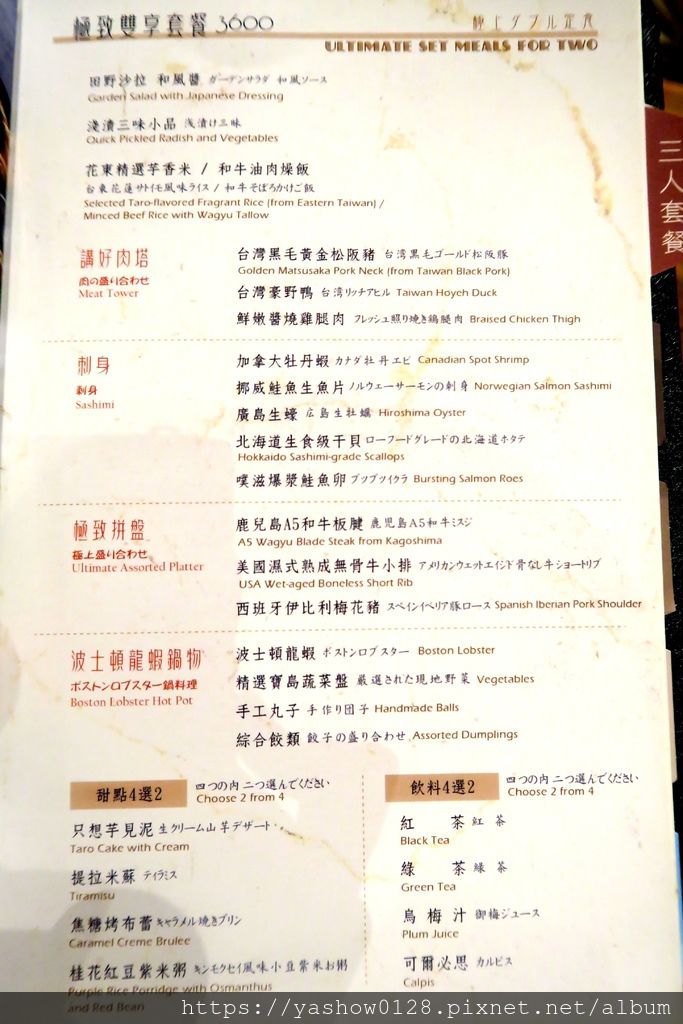 極致雙享套餐 3600 極上ダブル定食
ULTIMATE SET MEALS FOR TWO
田野沙拉 和風醬 ガーデンサラダ 和風ソース
Garden Salad with Japanese Dressing
淺漬三味小品 浅漬け三昧
Quick Pickled Radish and Vegetables
花東精選芋香米 / 和牛油肉燥飯
台東花蓮サトイモ風味ライス / 和牛そぼろかけご飯
Selected Taro-flavored Fragrant Rice (from Eastern Taiwan) /
Minced Beef Rice with Wagyu Tallow
講好肉塔
肉の盛り合わせ
Meat Tower
台灣黑毛黃金松阪豬 台湾黒毛ゴールド松阪豚
Golden Matsusaka Pork Neck (from Taiwan Black Pork)
台灣豪野鴨 台湾リッチアヒル Taiwan Hoyeh Duck
鮮嫩醬燒雞腿肉 フレッシュ照り焼き鶏腿肉 Braised Chicken Thigh
刺身
刺身
Sashimi
加拿大牡丹蝦 カナダ牡丹エビ Canadian Spot Shrimp
挪威鮭魚生魚片 ノルウェーサーモンの刺身 Norwegian Salmon Sashimi
廣島生蠔 広島生牡蠣 Hiroshima Oyster
北海道生食級干貝 ローフードグレードの北海道ホタテ
Hokkaido Sashimi-grade Scallops
噗滋爆漿鮭魚卵 プツプツイクラ Bursting Salmon Roes
極致拼盤
極上盛り合わせ
Ultimate Assorted Platter
鹿兒島A5和牛板腱 鹿児島A5和牛ミスジ
A5 Wagyu Blade Steak from Kagoshima
美國濕式熟成無骨牛小排 アメリカンウエットエイジド骨なし牛ショートリブ
USA Wet-aged Boneless Short Rib
西班牙伊比利梅花豬 スペインイベリア豚ロース Spanish Iberian Pork Shoulder
波士頓龍蝦鍋物
ボストンロブスター鍋料理
Boston Lobster Hot Pot
波士頓龍蝦 ボストンロブスター Boston Lobster
精選寶島蔬菜盤 厳選された現地野菜 Vegetables
手工丸子 手作り団子 Handmade Balls
綜合餃類 餃子の盛り合わせ Assorted Dumplings
甜點4選2 四つの内二つ選んでください
Choose 2 from 4
只想芋見泥 生クリーム山芋デザート
Taro Cake with Cream
提拉米蘇 ティラミス
Tiramisu
焦糖烤布蕾 キャラメル焼きプリン
Caramel Creme Brulee
桂花紅豆紫米粥 キンモクセイ風味小豆紫米お粥
Purple Rice Porridge with Osmanthus
and Red Bean
飲料4選2 四つの内二つ選んでください
Choose 2 from 4
紅茶 紅茶
Black Tea
綠茶 緑茶
Green Tea
烏梅汁 御梅ジュース
Plum Juice
可爾必思 カルピス
Calpis
三人套餐
https://yashow0128.pixnet.net/album